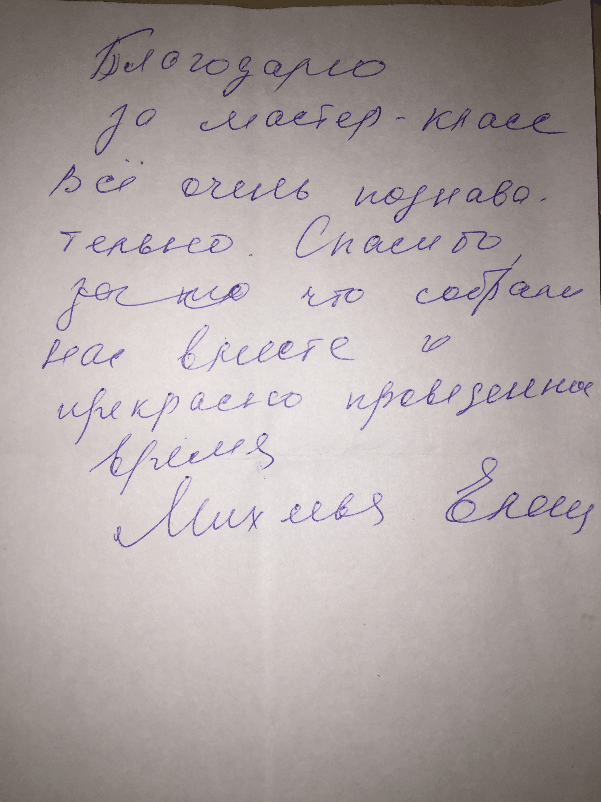 Благодарю
за мастер-класс
Всё очень познава-
тельно. Спасибо,
за то что собрали
нас вместе и
прекрасно проведенное
время